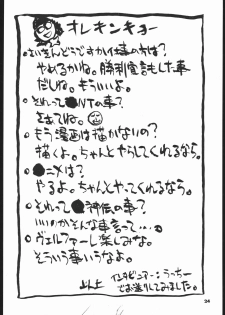 オレキンキョー
○さいきんどうですかい仕事の方は?
やめるかね。勝利宣言した事
だしね。もういいよ。
○それって●NTの事?
さあてね。
○もう漫画は描かないの?
描くよ。ちゃんとやらしてくれるなら。
○●ニメは?
やるよ。ちゃんとやってくれるなら。
○それって●神伝の事?
いいのかそんな事言って…。
○ヴェルファーレ楽しみね。
そういう事いうなよ。
以上
インタビュアー:うっちー
でお送りしてみました。
24